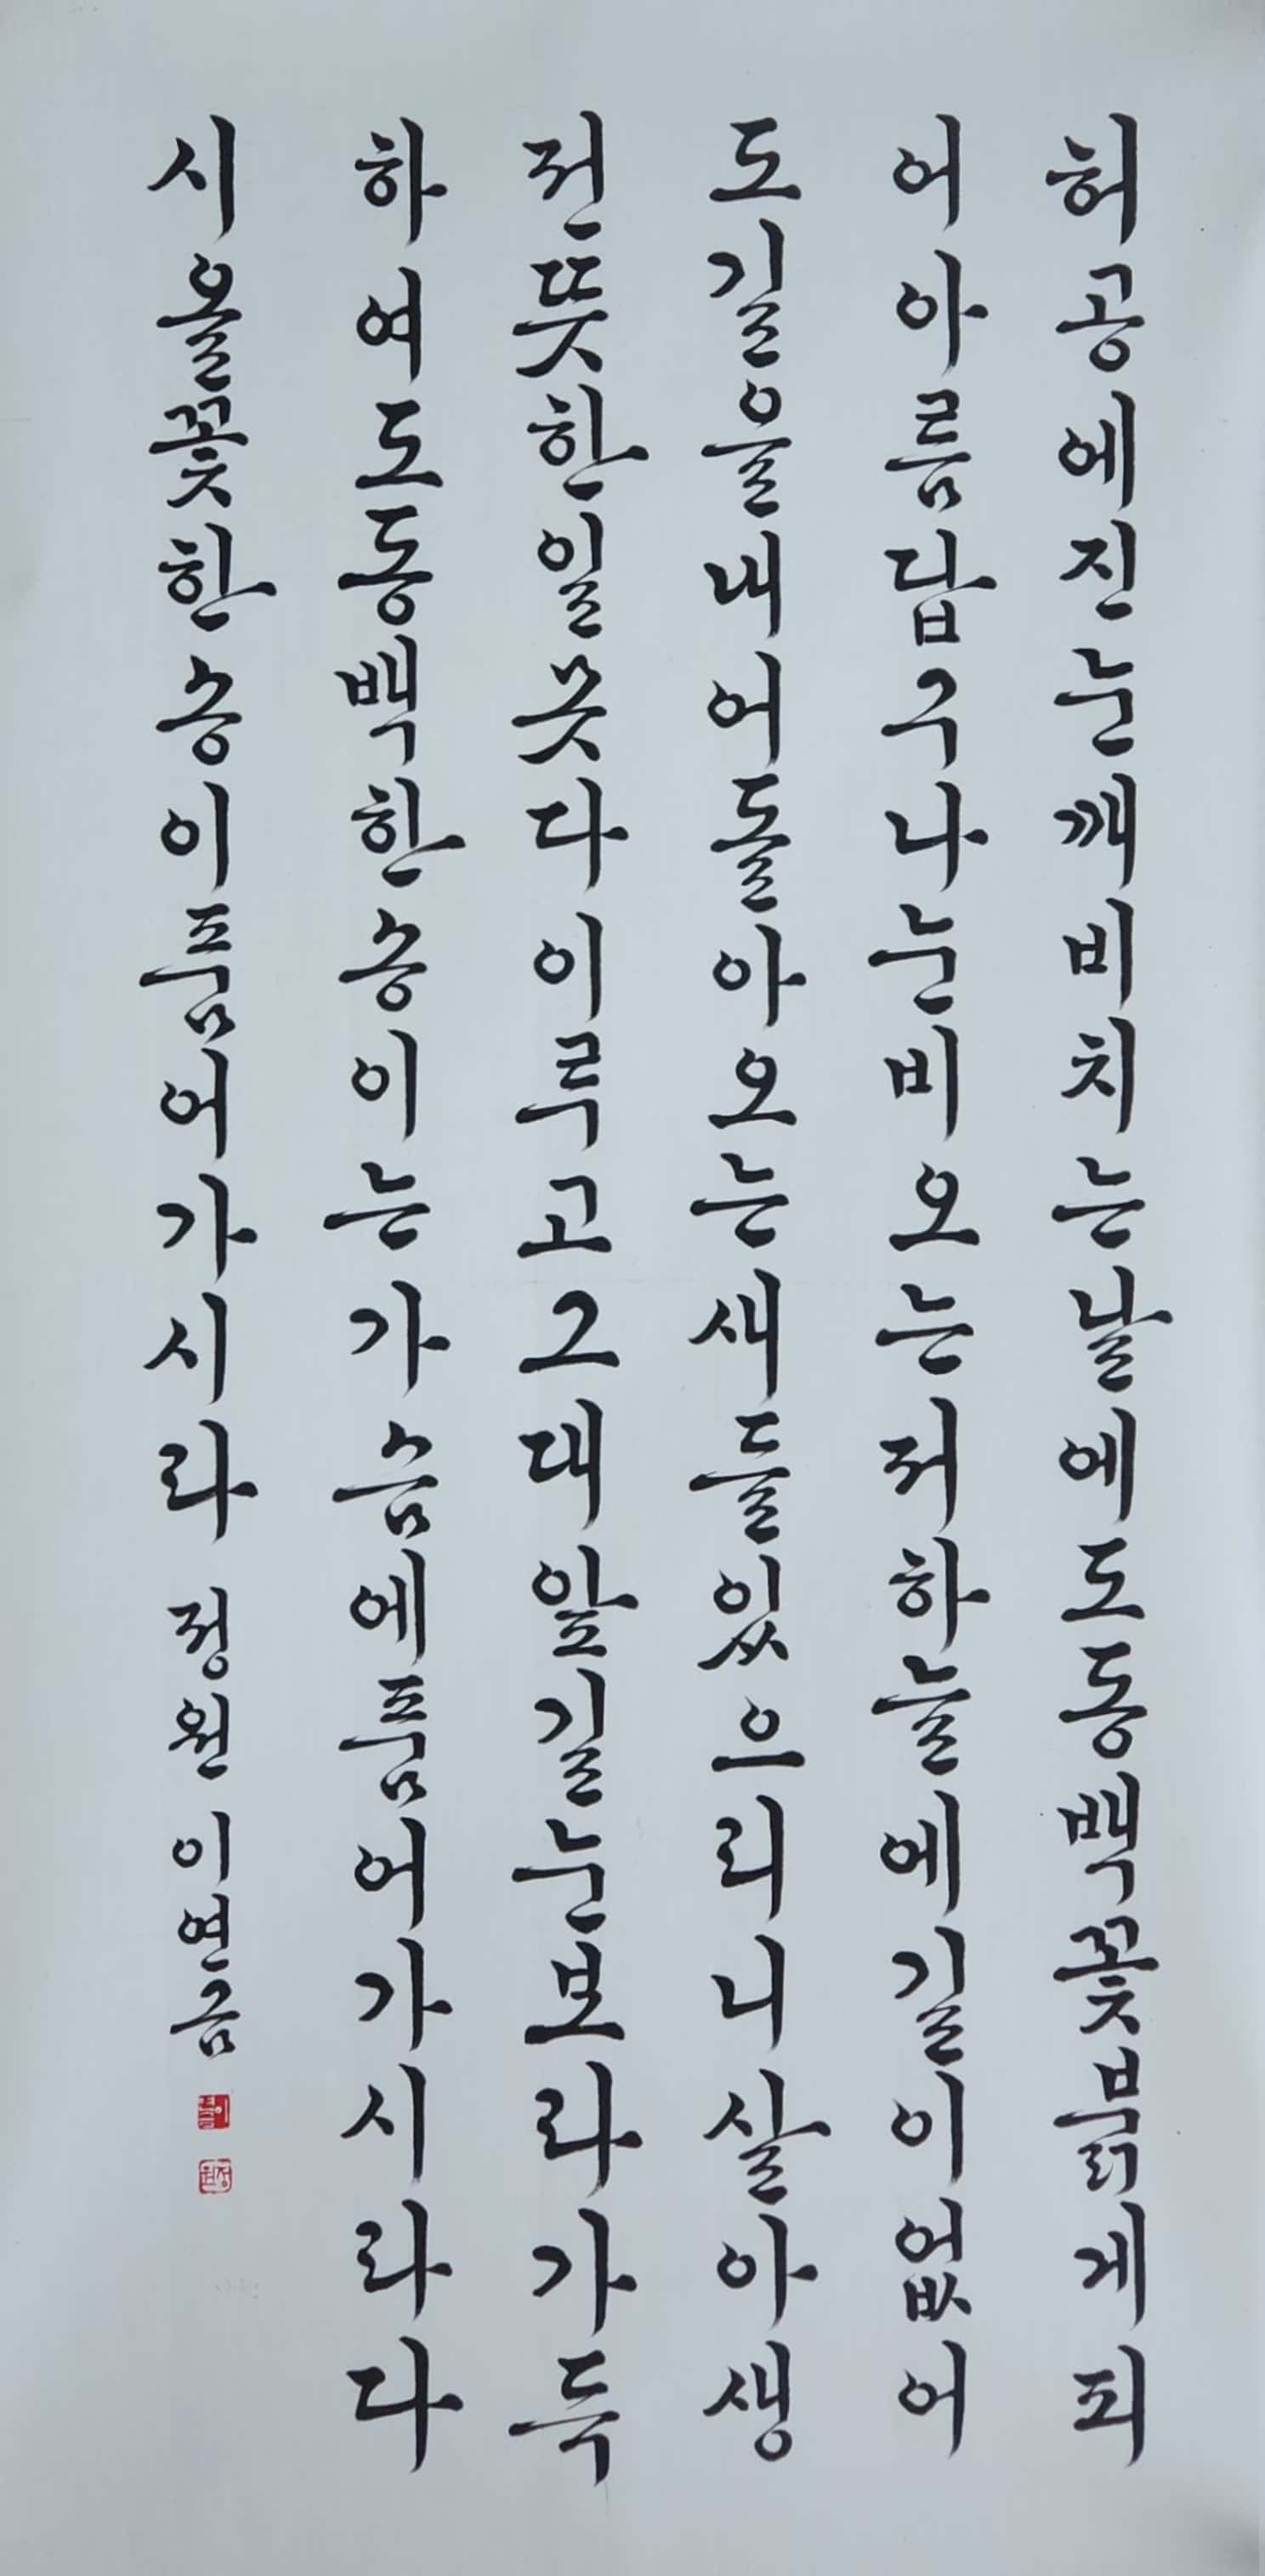 허공에진눈깨비치는날에도동백꽃붉게피
어아름답구나눈비오는저하늘에길이없어
도길을내어돌아오는새들있으리니살아생
전뜻한일못다이루고그대앞길눈보라가득
하여도동백한송이는가슴에품어가시라다
시올꽃한송이품어가시라 정원 이연금